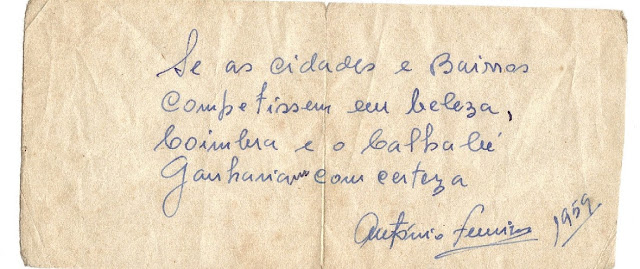 Se as cidades e Bairros
Competissem em beleza,
Coimbra e o Calhabé
Ganhariam com certeza
António Ferreira 1959